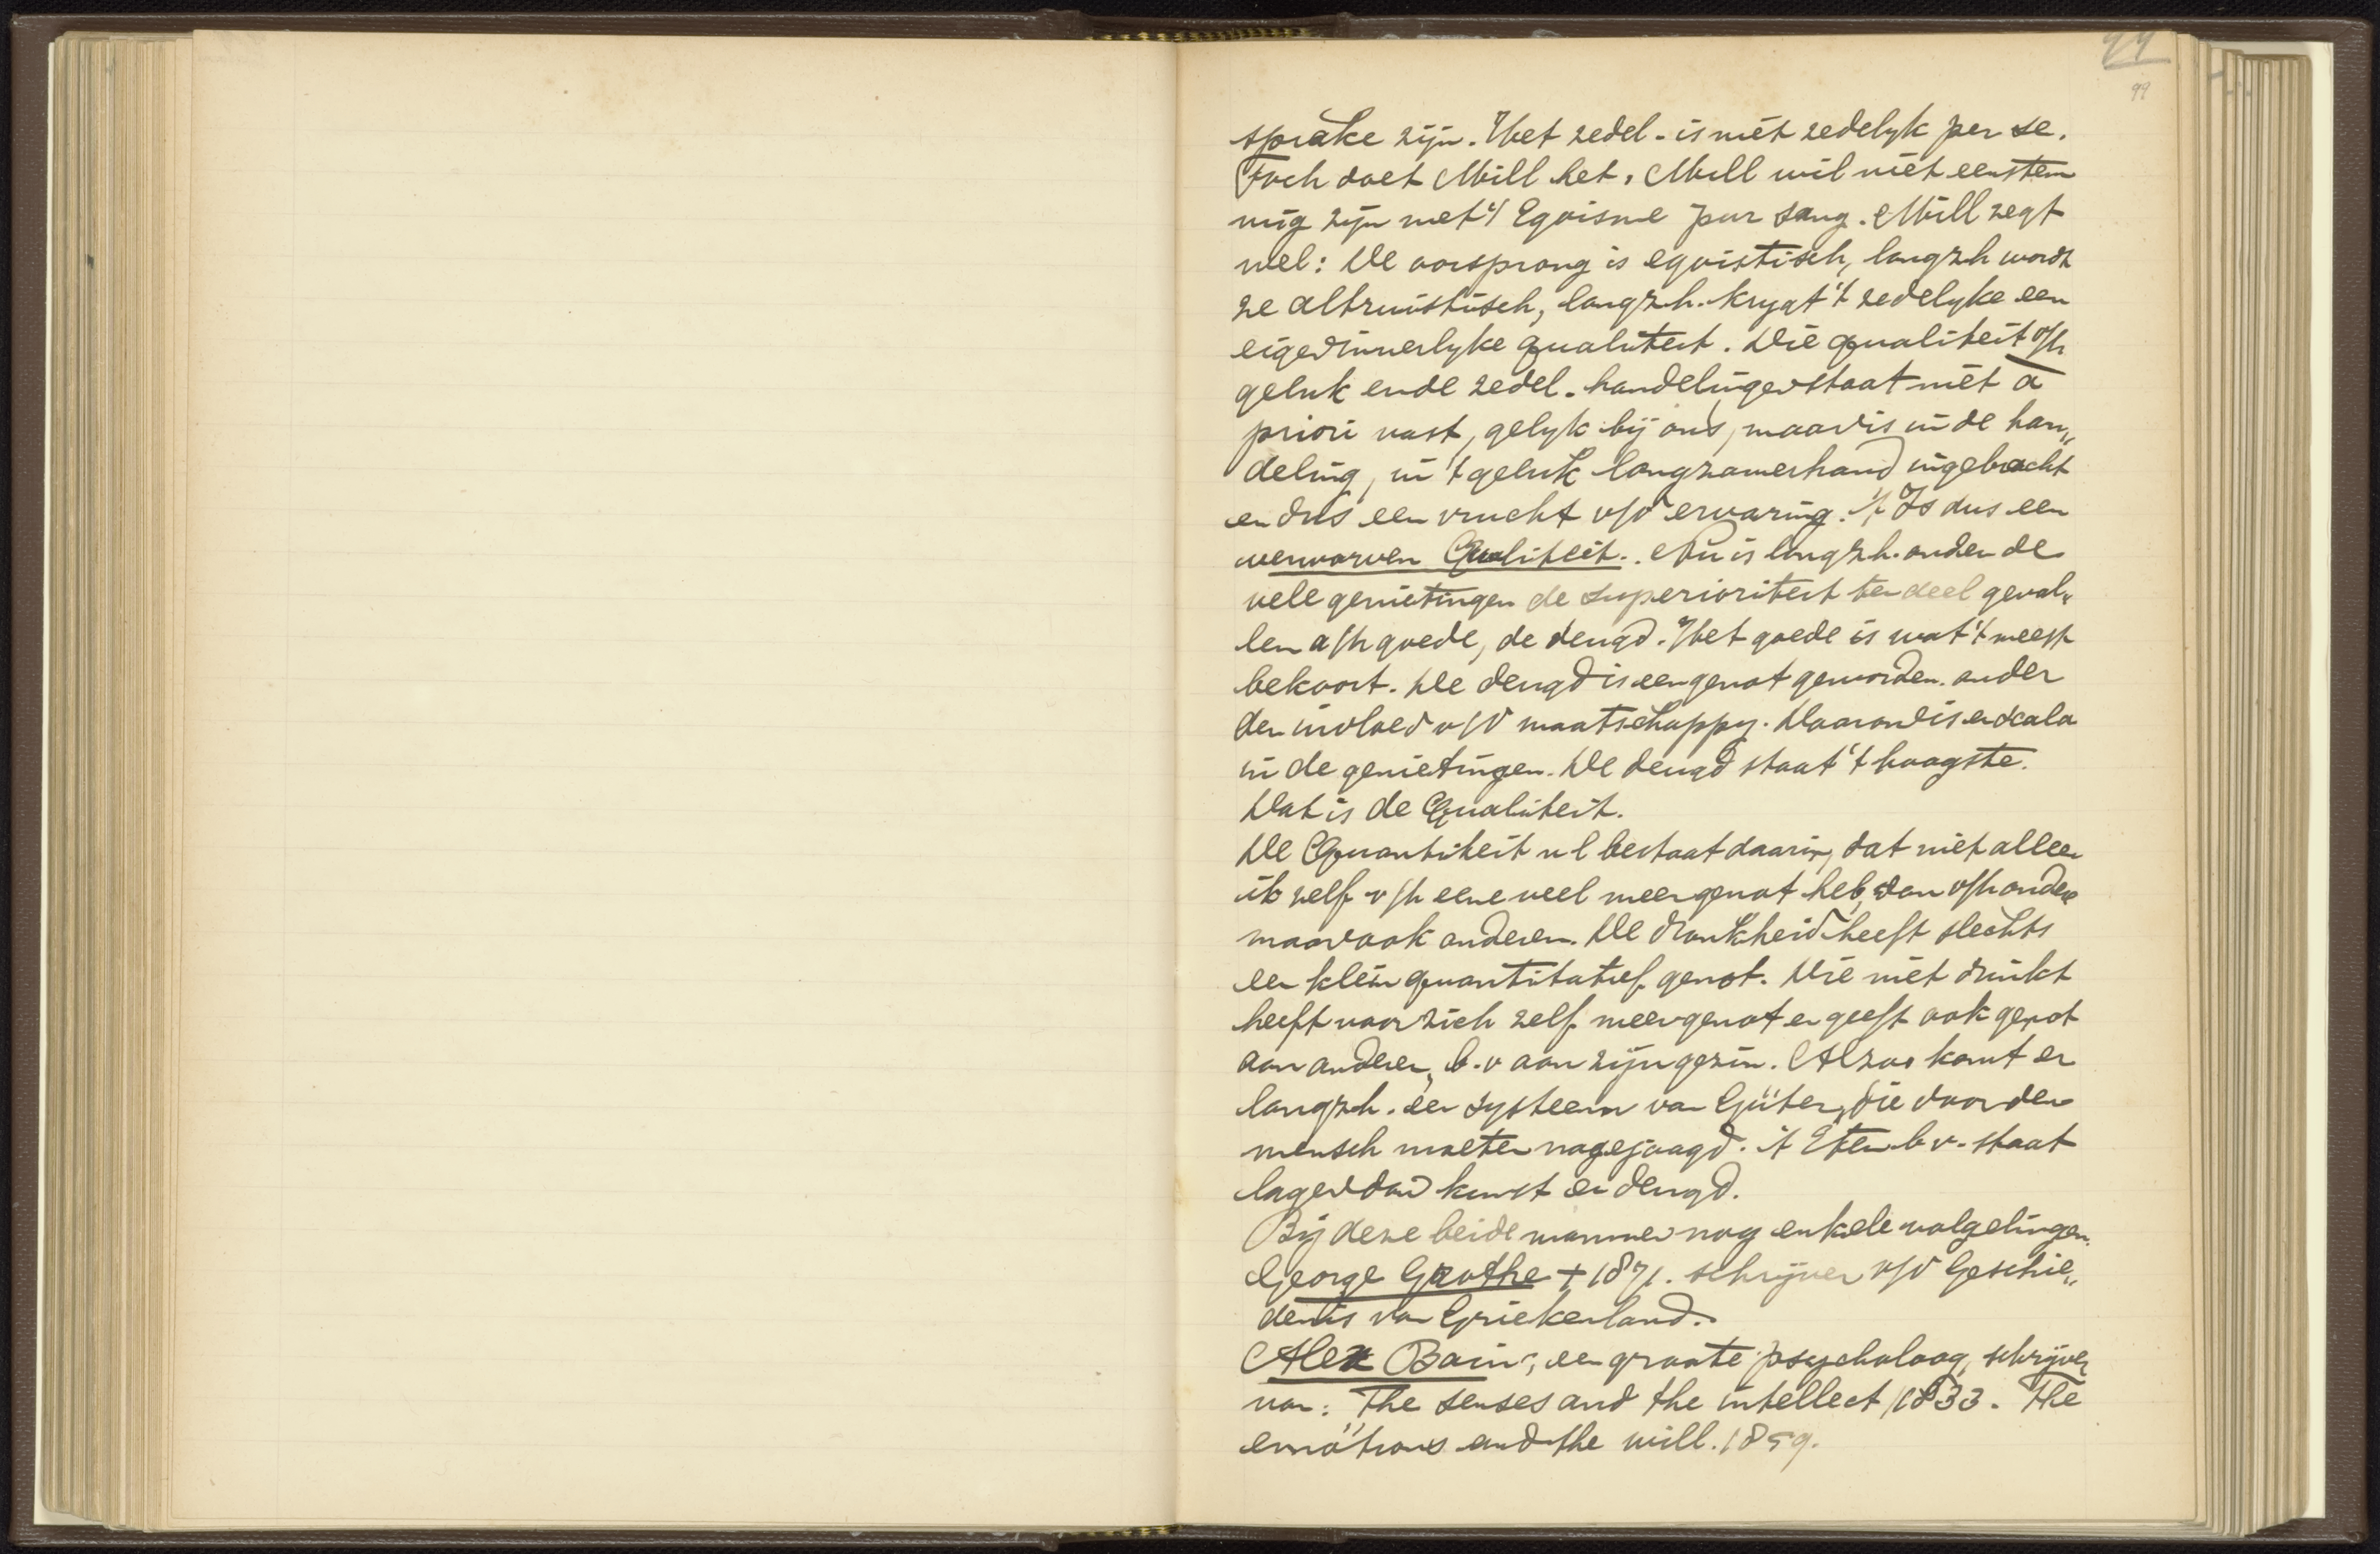 99
99
sprake zijn. Het zedel. is niet zedelyk per se.
Toch doet Mill het. Mill wil niet eenstem
mig zijn met 't Egoisme pur sang. Mill zegt
wel: De oorsprong is egoistisch, langzh wordt
ze altruistisch, langzh. krygt 't zedelyke een
eigen innerlyke qualiteit. Die qualiteit v/h
geluk en de zedel. handelingen staat niet a
priori vast, gelyk bij ons, maar is in de han„
deling, in 't geluk langzamerhand ingebracht
en dus een vrucht v/d ervaring. 't Is dus een
verworven Qualiteit. Nu is langzh. onder de
vele genietingen de superioriteit ten deel geval„
len a/h goede, de deugd. Het goede is wat 't meest
bekoort. De deugd is een genot geworden onder
den invloed v/d maatschappy. Daarom is er scala
in de genietingen. De deugd staat 't hoogste.
Dat is de Qualiteit.
De Quantiteit nl bestaat daarin, dat niet alleen
ik zelf v/h eene veel meer genot heb, dan v/h andere
maar ook anderen. De dronkheid heeft slechts
een klein quantitatief genot. Wie niet drinkt
heeft voor zich zelf meer genot en geeft ook genot
aan anderen, b.v aan zijn gezin. Alzoo komt er
langzh. een systeem van Güter, die door den
mensch moeten nagejaagd. 't Eten b v. staat
lager dan kunst en deugd.
Bij deze beide mannen nog enkele volgelingen.
George Grothe † 1871. schrijver v/d Geschie„
denis van Griekenland.
Alex Bain, een groote psycholoog, schrijver
van: The senses and the intellect 1833. The
emotions and the will. 1859.